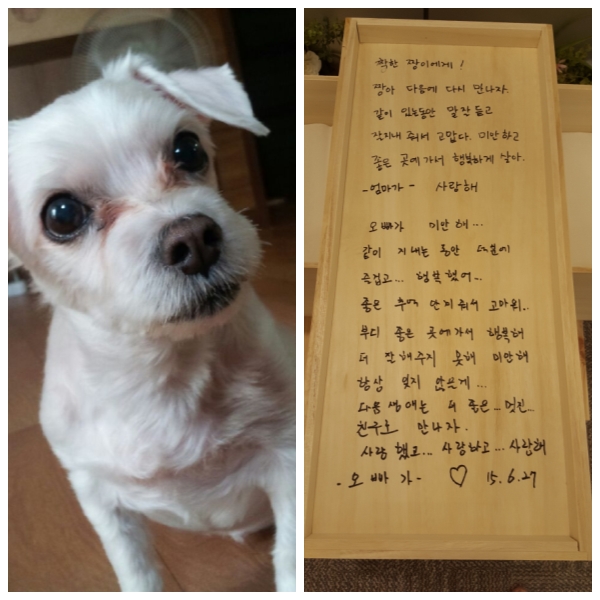 착한 짱이에게!
짱아 다음에 다시 만나자.
같이 있는동안 말 잘 듣고
잘지내 줘서 고맙다. 미안하고
좋은 곳에 가서 행복하게 살다.
-엄마가- 사랑해
오빠가 미안해...
같이 지내는 동안 덕분에
즐겁고... 행복했어...
좋은 추억 만들어줘서 고마워..
부디 좋은 곳에가서 행복해
더 잘해주지 못해 미안해
항상 잊지 않을게...
다음 생애는 더 좋은.. 멋진..
친구로 만나자.
사랑했고... 사랑하고... 사랑해
-오빠가- ♡ 15.6.27